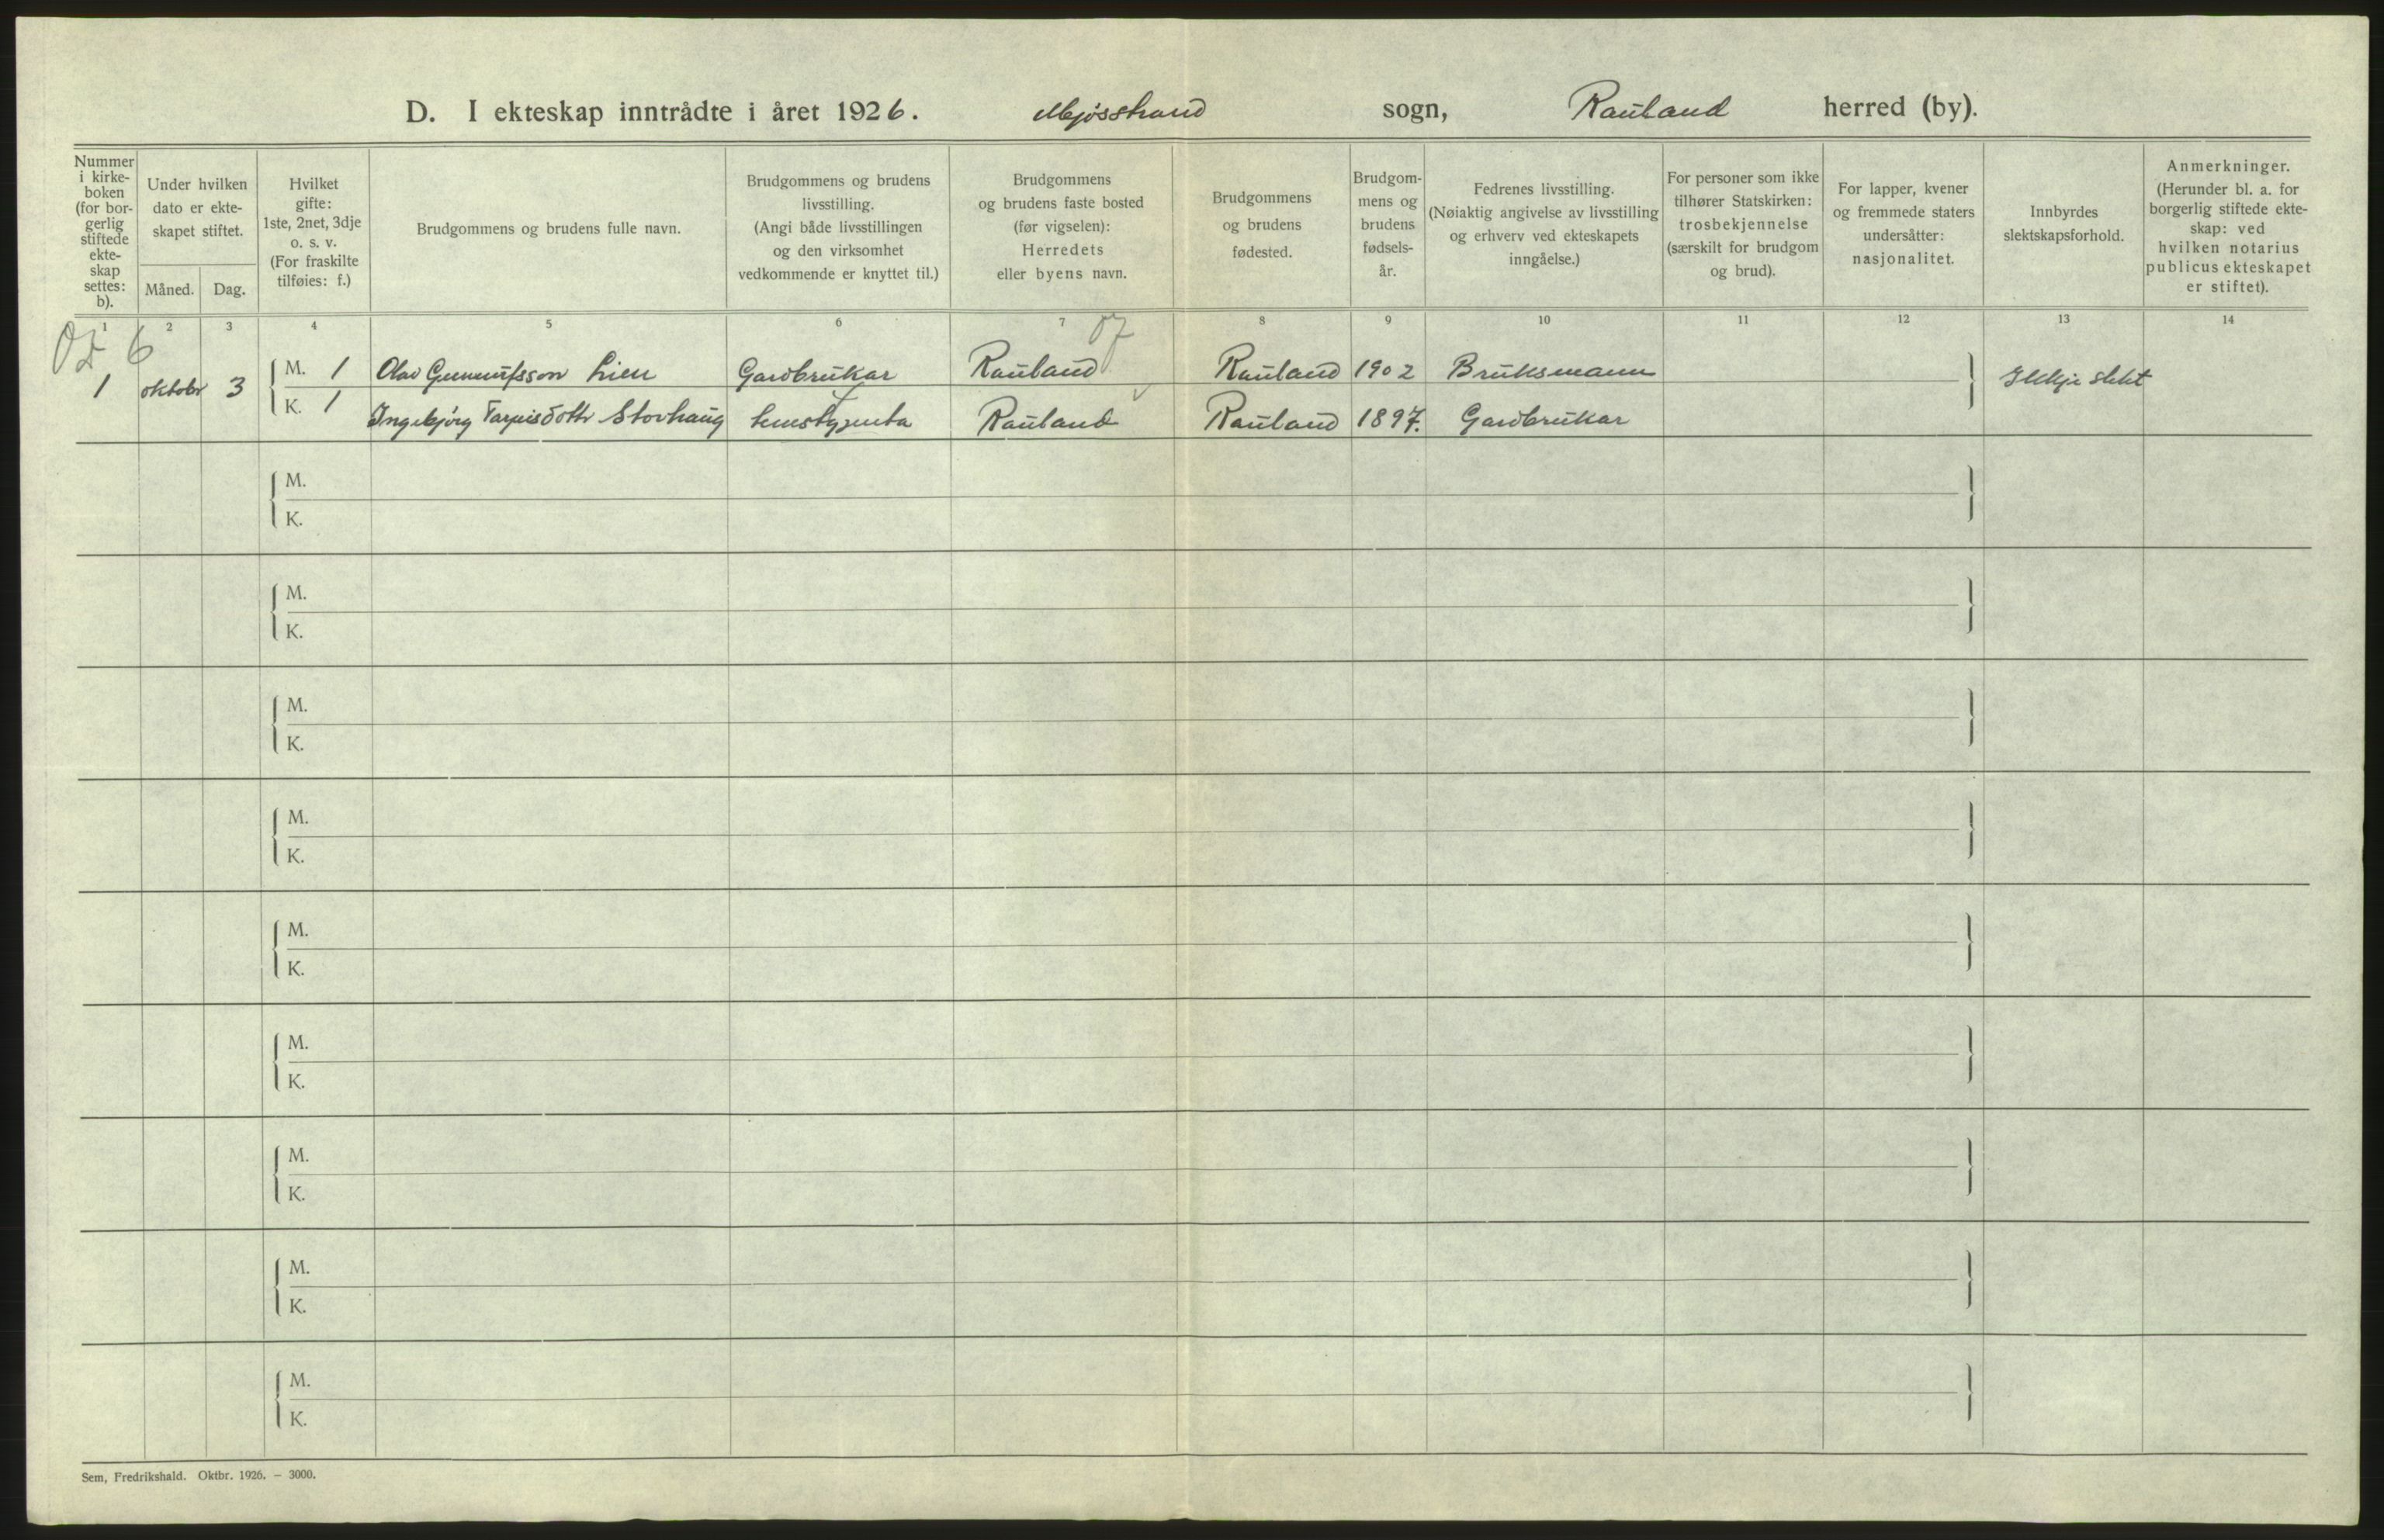 D. I ekteskap inntrådte i året 1926. Mjøsstrand sogn, Rauland herred (by).
Nummer i kirke-boken (for bor-gerlig stiftede ekte-skap settes: b).
Under hvilken dato er ekte-skapet stiftet.
Måned. Dag.
Hvilket gifte: 1ste, 2net, 3dje o. s. v. (For fraskilte tilføies: f.)
Brudgommens og brudens fulle navn.
Brudgommens og brudens livsstilling. (Angi både livsstillingen og den virksomhet vedkommende er knyttet til.)
Brudgommens og brudens faste bosted (før vigselen): Herredets eller byens navn.
Brudgommens og brudens fødested.
Brudgom-mens og brudens fødsels-år.
Fedrenes livsstilling. (Nøiaktig angivelse av livsstilling og erhverv ved ekteskapets inngåelse.)
For personer som ikke tilhører Statskirken: trosbekjennelse (særskilt for brudgom og brud).
For lapper, kvener og fremmede staters undersåtter: nasjonalitet.
Innbyrdes slektskapsforhold.
Anmerkninger. (Herunder bl. a. for borgerlig stiftede ekte-skap: ved hvilken notarius publicus ekteskapet er stiftet).
1 2 3 4 5 6 7 8 9 10 11 12 13 14
1 oktober 3 M. 1 Olav Gunnulfsson Lien Gardbrukar Rauland Rauland 1902 Bruksmann Ikkje slekt
K. 1 Ingebjörg Tarjeisdottr Storhaug Rauland Rauland 1897. Gardbrukar
M.
K.
M.
K.
M.
K.
M.
K.
M.
K.
M.
K.
M.
K.
M.
K.
M.
K.
Sem, Fredrikshald. Oktbr. 1926. – 3000.